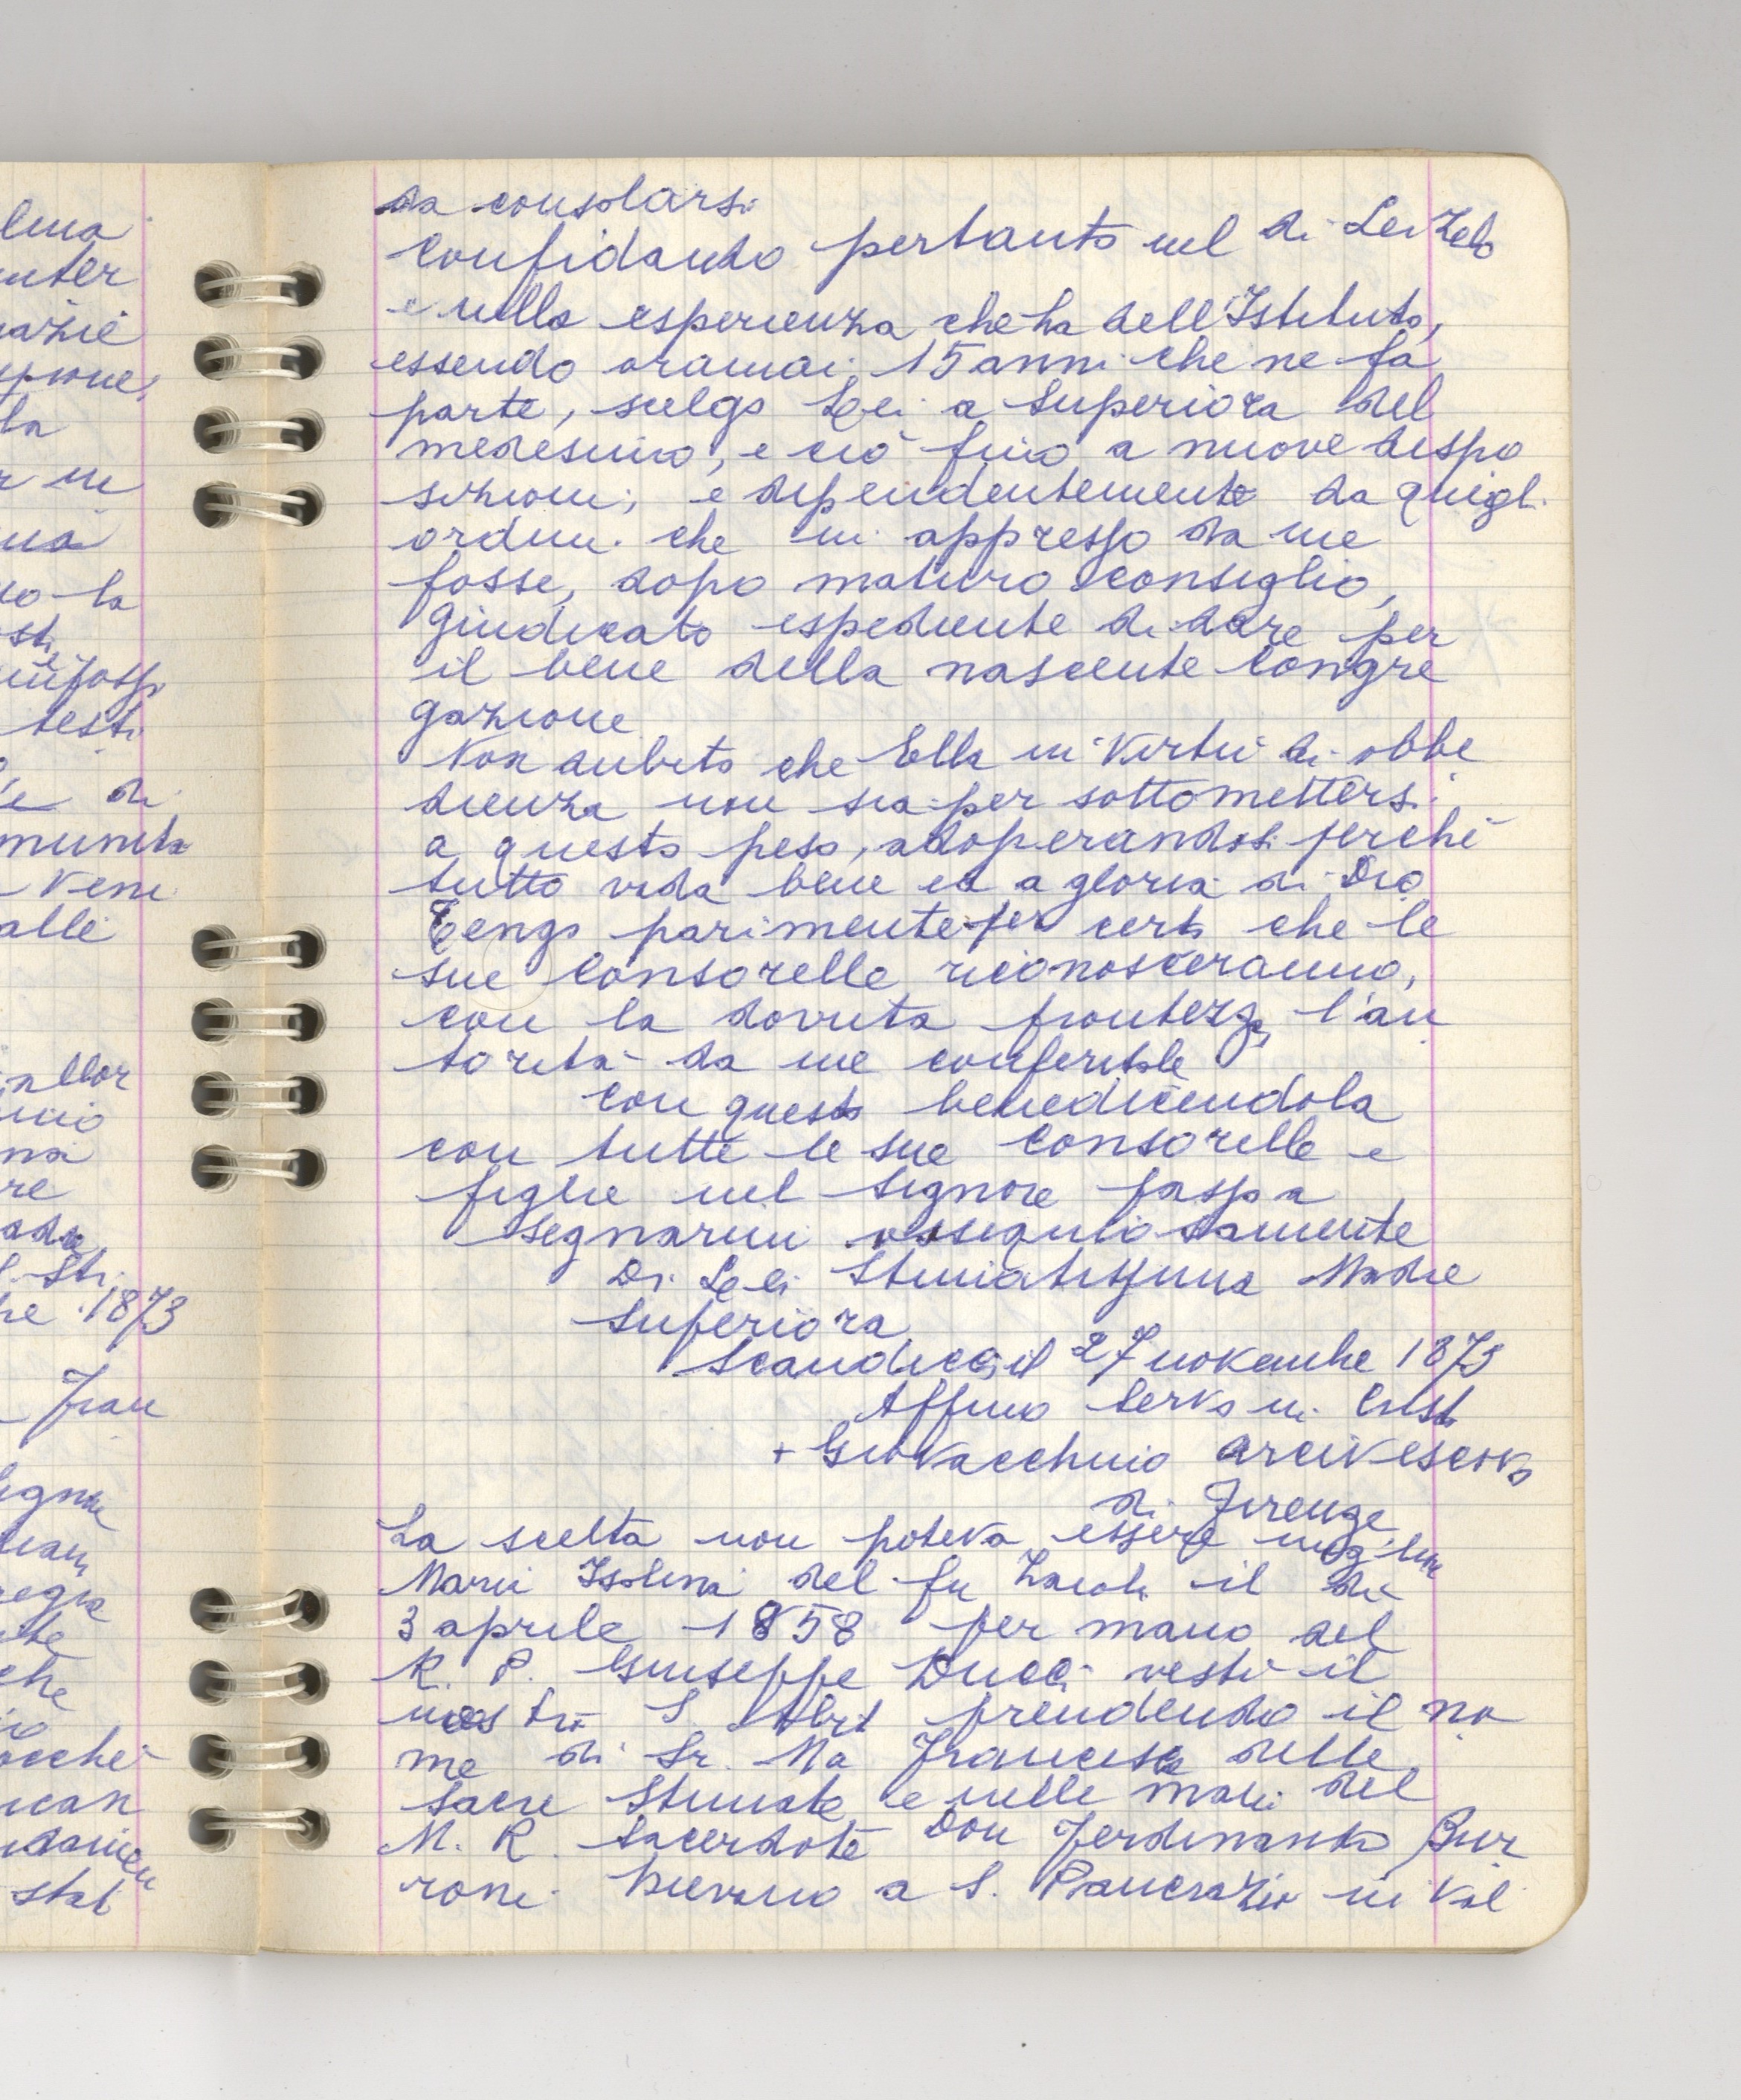 lma
nter
azie
zione,
la
r in
ua
o la
sti
testi
di
munità
Veni
alle
allor
mio
na
re
1873
Fran
egna
che
occhè
stat
da consolarsi
Confidando pertanto nel di Lei Zelo
e nella esperienza che ha dell'Istituto,
essendo oramai 15 anni che ne fa
parte, scelgo Lei a Superiora del
medesimo, e ciò fino a nuove dispo
sizioni, e dipendentemente da quegli
ordini che in appresso da me
fosse, dopo maturo consiglio,
giudicato espediente di dare per
il bene della nascente Congre
gazione
Non dubito che Ella in Virtù di obbe
dienza non sia per sottomettersi
a questo peso, adoperandosi perchè
tutto vada bene ed a gloria di Dio
Tengo parimente per certo che le
sue Consorelle riconosceranno,
con la dovuta prontezza l'au
torità da me conferitale
Con questo benedicendola
con tutte le sue Consorelle e
figlie nel Signore passo a
segnarmi ossequiosamente
Di Lei Stimatissima Madre
Superiora
Scandicci, il 27 novembre 1873
Affmo Servo in Cristo
+ Giovacchino arcivescovo
di Firenze
La scelta non poteva essere migliore
Marni Isolina del fu il dì
3 aprile 1858 per mano del
R. P. Giuseppe Ducci vestì il
nostro S. Abit prendendo il no
me di Sr. Ma Francesca delle
Sacre Stimate e nelle mani del
M. R. Sacerdote Don Ferdinando Bur
roni a S. Pancrazio in Val